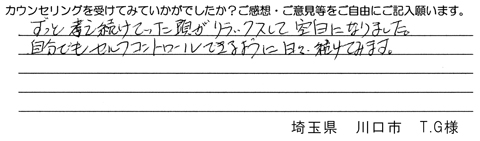 カウンセリングを受けてみていかがでしたか？ご感想・ご意見等をご自由にご記入願います。
ずっと考え続けていった頭がリラックスして空白になりました。
自分でもセルフコントロールできるように日々続けてみます。
埼玉県　川口市　T.G様